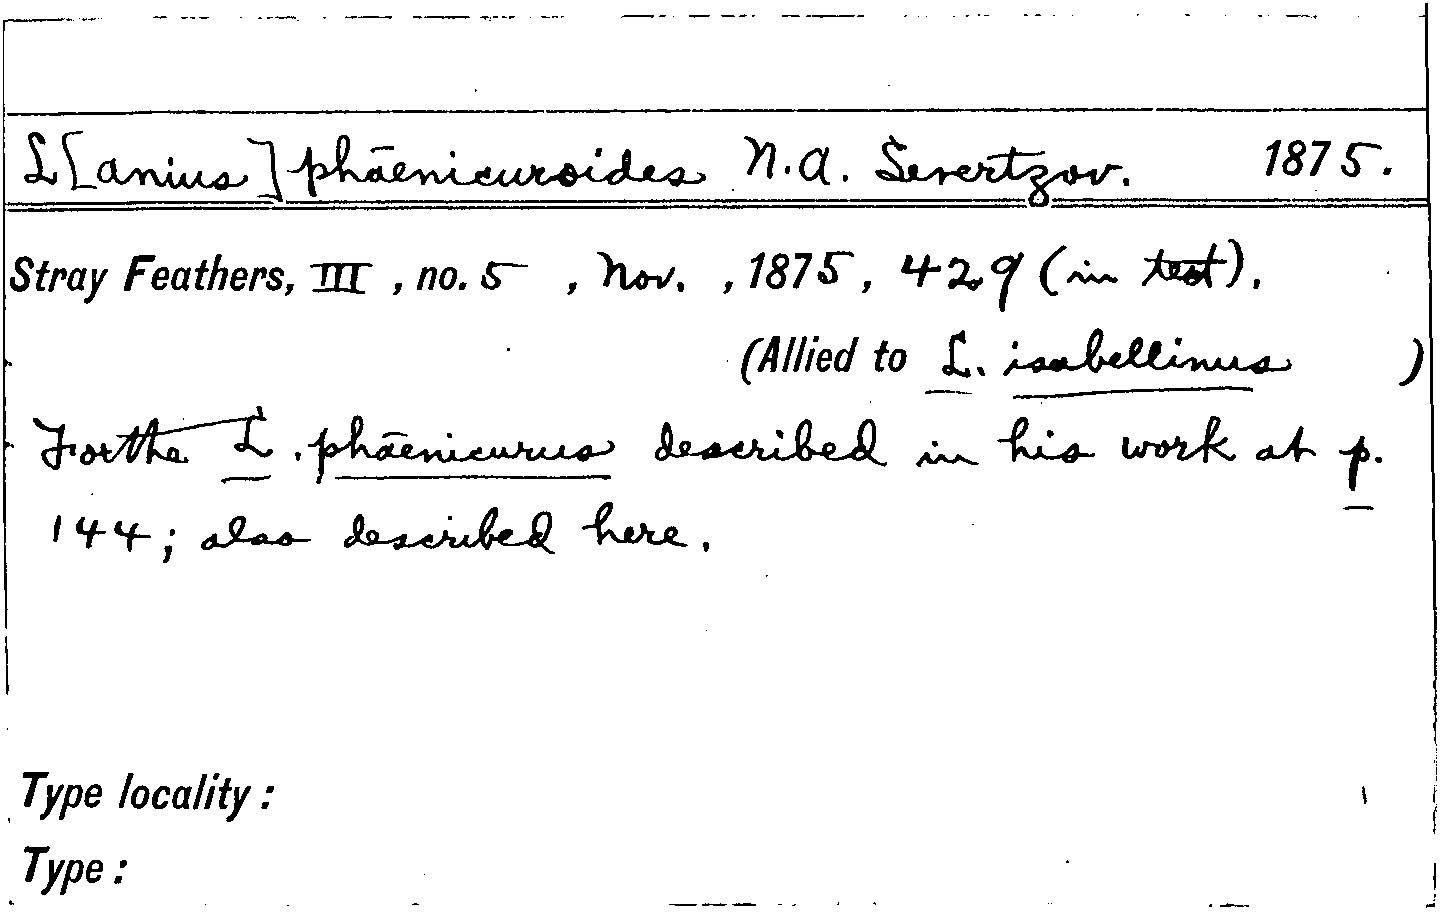 L[anius] phāenicuroides N.A. Severtzov. 1875.
Stray Feathers, III, no. 5, Nov., 1875, 429 (in text).
(Allied to L. isabellinus)
For the L. phāenicurus described in his work at p.
144; also described here.
Type locality:
Type: